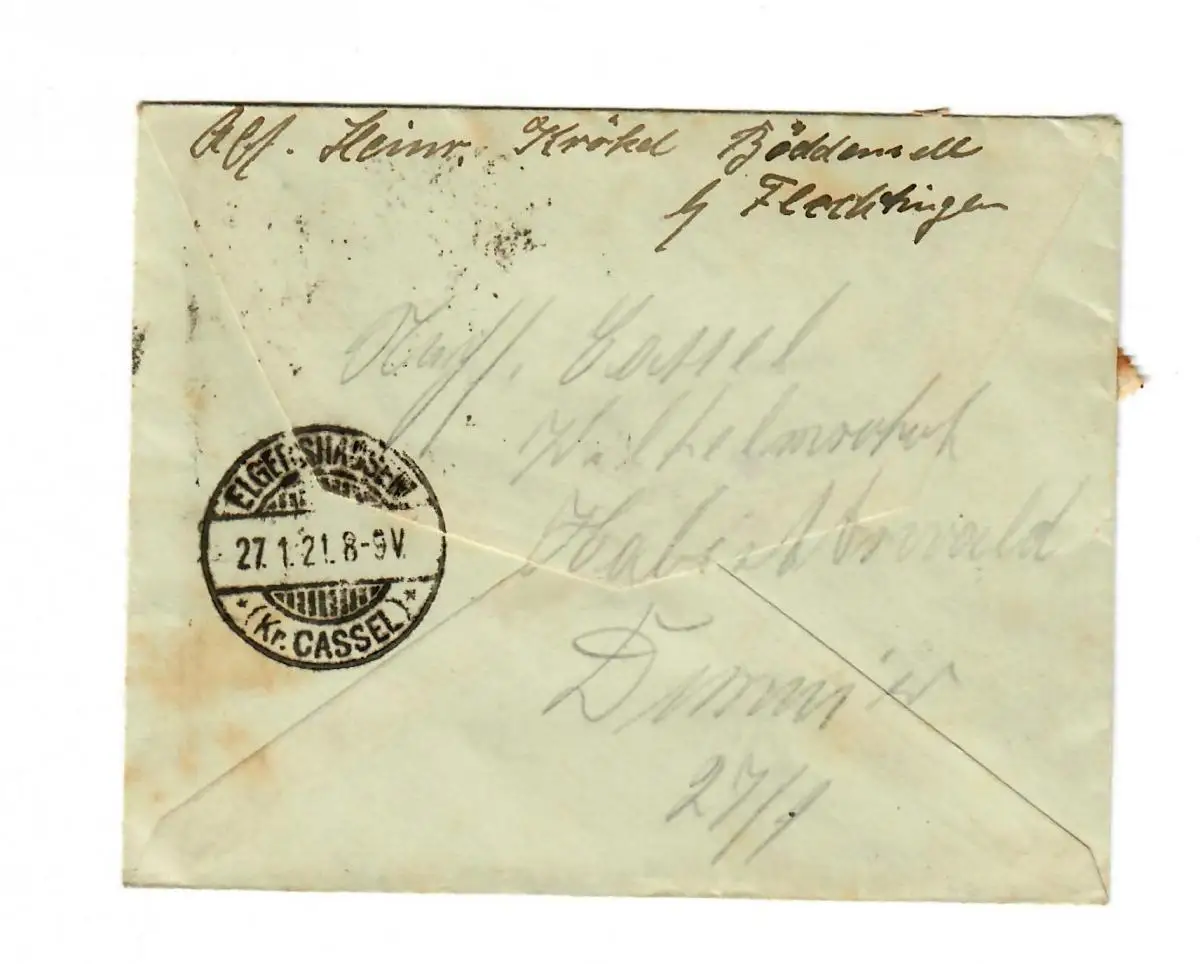 Abs. Heinr. Krökel Böddensell
b/ Flechtingen
Cassel
Wilhelmshöh
Habichtswald
27/1
ELGERSHAUSEN
27.1.21.8-9V.
*(Kr. CASSEL)*